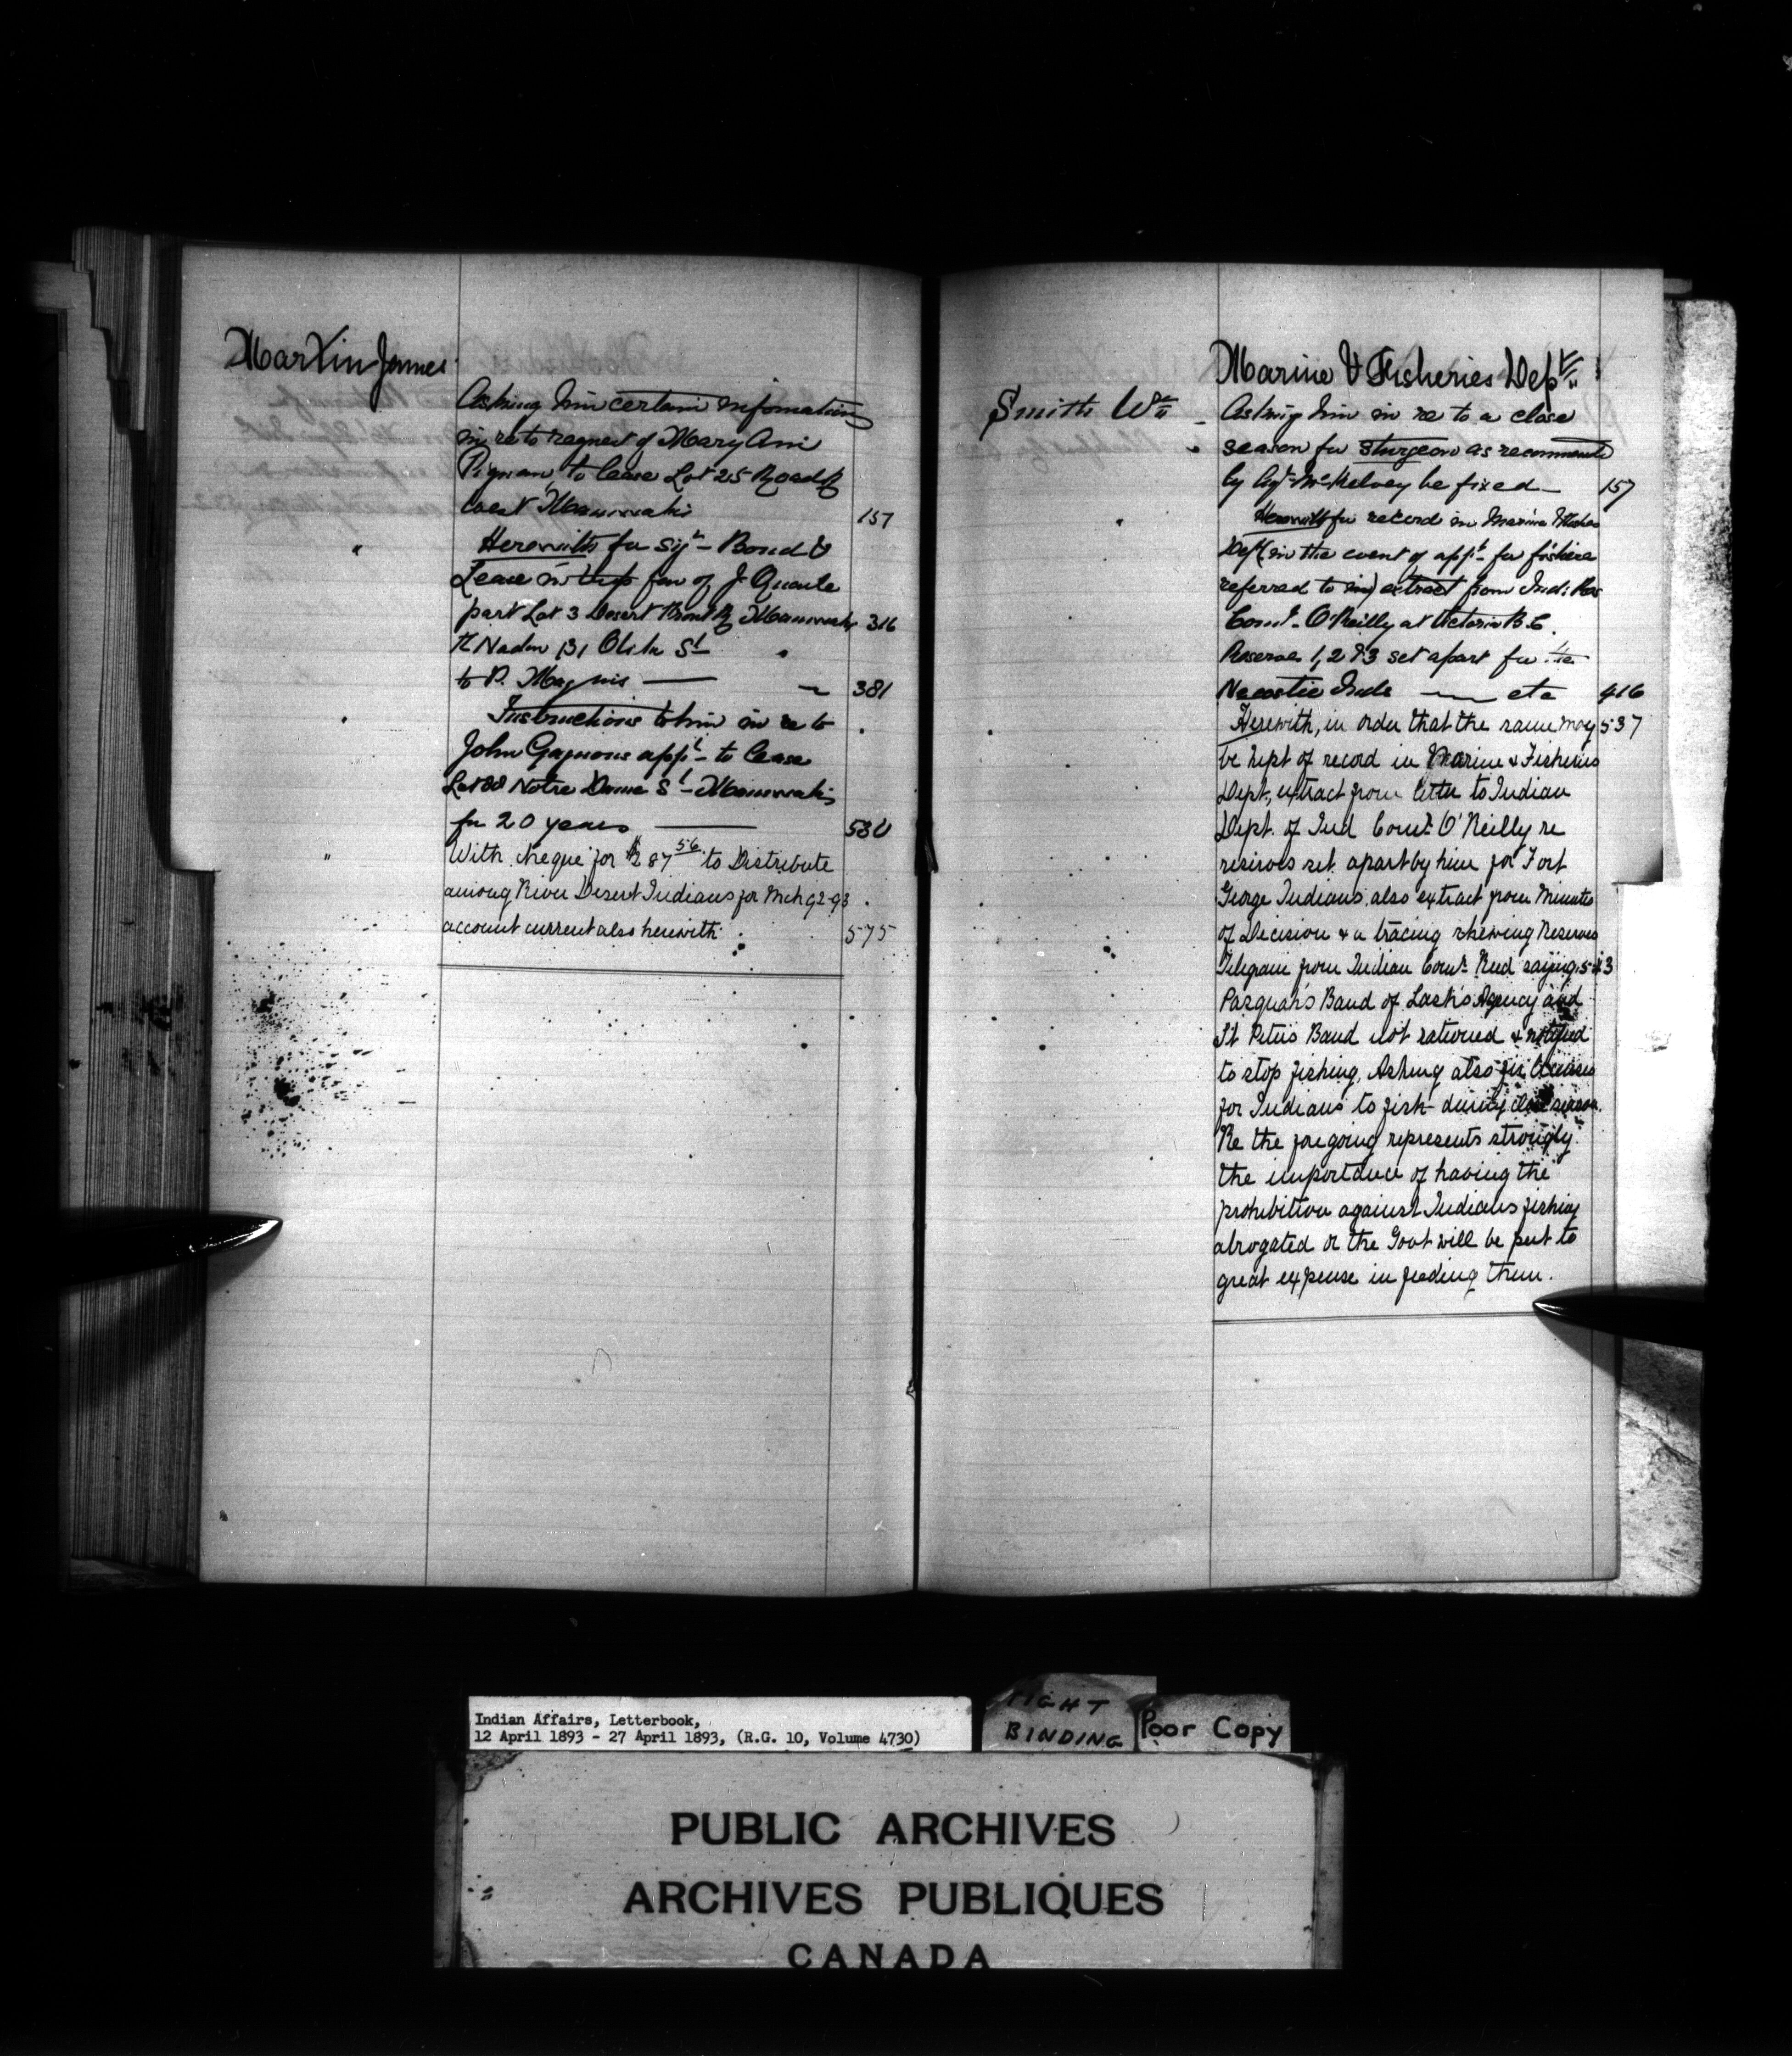 Martin James
Asking him certain information
in re to request of Mary Ann
to lease Lot 25 Road R
west Maniwaki 157
" Herewith for sigt - Bond &
Lease in trip fav of J. Quaile
part Lot 3 Desert Front R Maniwaki 316
Nadon 131 St "
to P. Magnis — 381
Instructions to him in re to
John Gagnons appt - to lease
Lot 88 Notre Dame St - Maniwaki
for 20 years — 530
" With cheque for $287.56 to Distribute
among River Desert Indians for Mch 92-93
account current also herewith 575
Marine & Fisheries Dept.
Smith Wm - Asking him in re to a close
season for sturgeon as recommended
by Agt McKelvey be fixed — 157
Herewith for record in Marine & Fisheries
Dept (in the event of appt for fishere
referred to in) extract from Ind: Res
Comr. O'Reilly at Victoria B.C.
Reserve 1, 2 & 3 set apart for the
Inds — etc 416
Herewith, in order that the same may 537
be kept of record in Marine & Fisheries
Dept, extract from letter to Indian
Dept. of Ind Comr O'Reilly re
reserves set apart by him for Fort
George Indians, also extract from Minutes
of Decision & a tracing shewing Reserves
Telegram from Indian Comr. Reed saying 543
Pasquah's Band of Lash's Agency and
St Peters Band not rationed & notified
to stop fishing, Asking also for licenses
for Indians to fish during close season.
Re the foregoing represents strongly
the importance of having the
prohibition against Indians fishing
abrogated or the Govt will be put to
great expense in feeding them.
Indian Affairs, Letterbook,
12 April 1893 - 27 April 1893, (R.G. 10, Volume 4730)
TIGHT
BINDING
Poor Copy
PUBLIC ARCHIVES
ARCHIVES PUBLIQUES
CANADA